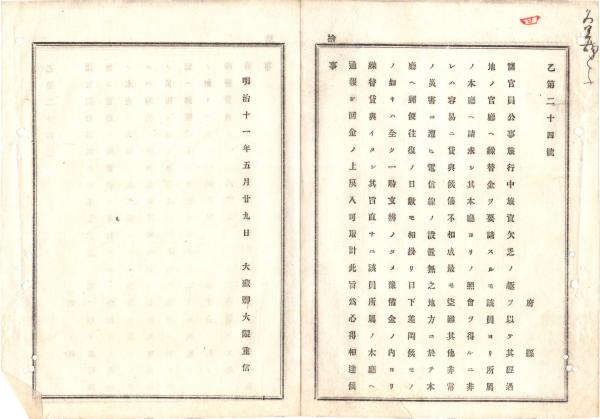 乙第二十四號
府縣
諸官員公事旅行中旅費欠乏ノ趣ヲ以テ其經過
地ノ官廳ヘ繰替金ヲ要請スルモ該員ヨリ所屬
ノ本廳ヘ請求シ其本廳ヨリノ照會ヲ得ルニ非
レハ容易ニ貸與候儀不相成最モ盗難其他非常
ノ災害ニ遭ヒ電信線ノ設置無之地方ニ於テ本
廳ヘ郵便往復ノ日數モ相掛リ目下差閊候モノ
ノ如キハ全ク一時支辨ノタメ豫備金ノ內ヨリ
繰替貸與イタシ其旨直チニ該員所屬ノ本廳ヘ
通報シ回金ノ上戾入可取計此旨爲心得相達候
事
明治十一年五月廿九日 大藏卿大隈重信